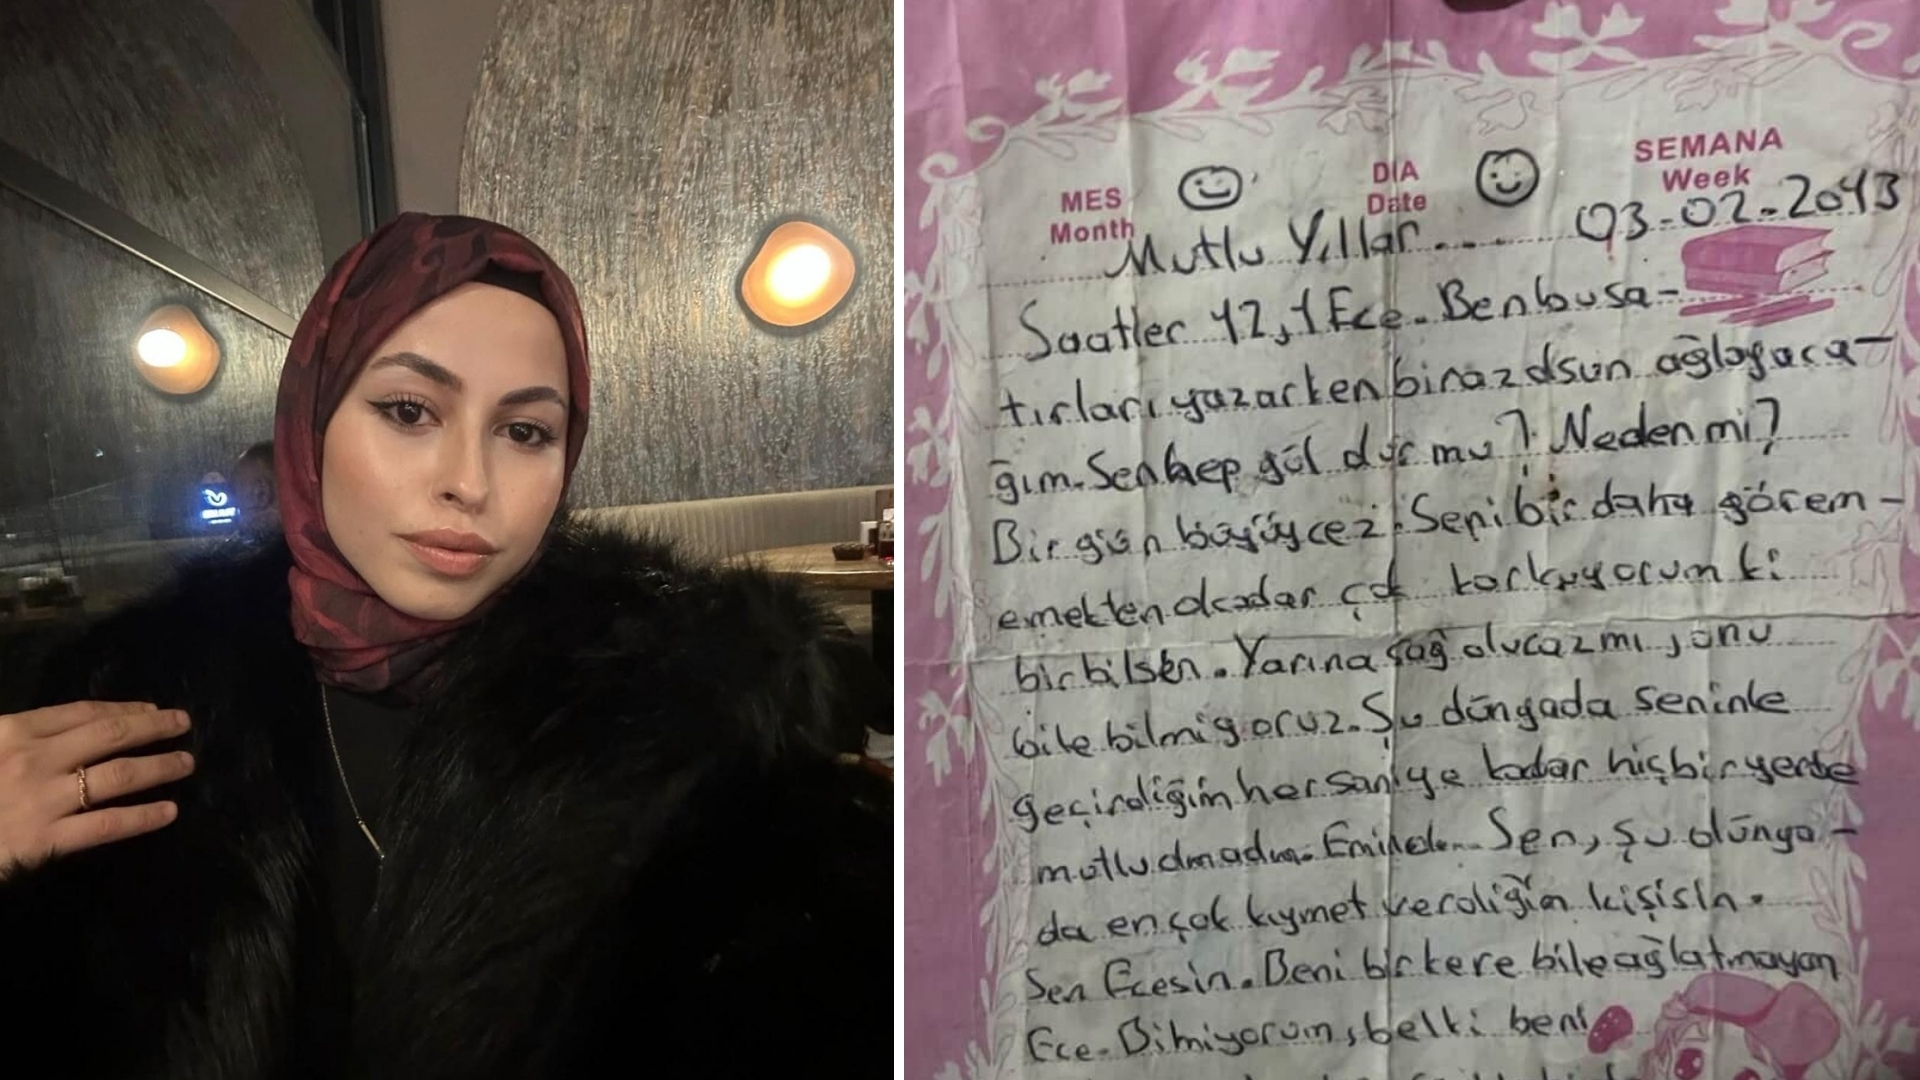 MES
Month
DIA
Date
SEMANA
Week
03-02-2013
Mutlu Yıllar....
Saatler 12,1 Ece. Ben bu sa-
tırları yazarken biraz olsun ağlayaca-
ğım. Sen hep gül dur mu? Neden mi?
Bir gün büyüycez. Seni bir daha görem-
emekten o kadar çok korkuyorum ki
bir bilsen. Yarına sağ olucaz mı, onu
bile bilmiyoruz. Şu dünyada seninle
geçirdiğim her saniye kadar hiçbir yerde
mutlu olmadım. Sen, şu dünya-
da en çok kıymet verdiğim kişisin.
Sen Ecesin. Beni bir kere bile ağlatmayan
Ece. Bilmiyorum, belki beni